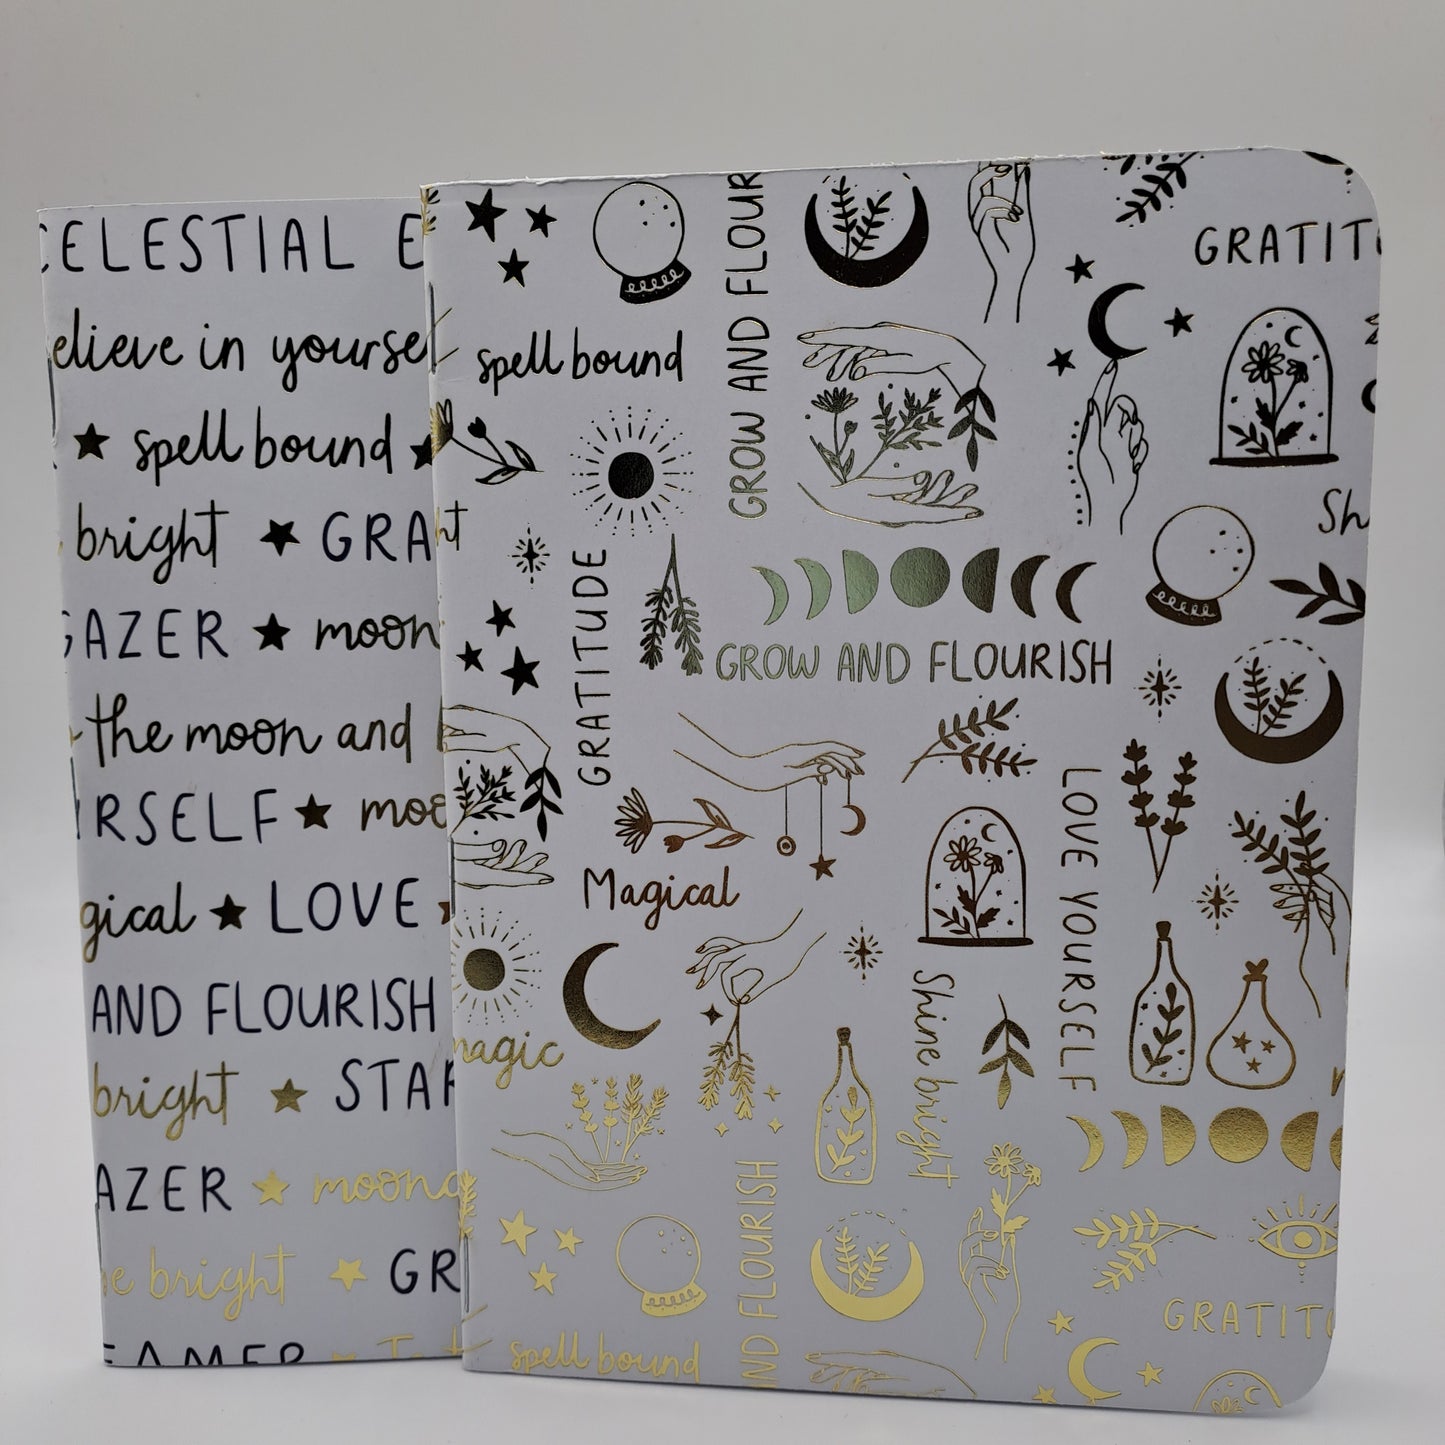 CELESTIAL E
elieve in yourse
spell bound
bright GRA
GAZER moon
the moon and
RSELF moo
gical LOVE
AND FLOURISH
bright STAR
AZER moon
e bright GR
EAMER
GROW AND FLOUR
GRATIT
spell bound
Sh
GRATITUDE
GROW AND FLOURISH
LOVE YOURSELF
Magical
Shine bright
magic
ND FLOURISH
GRATIT
spell bound